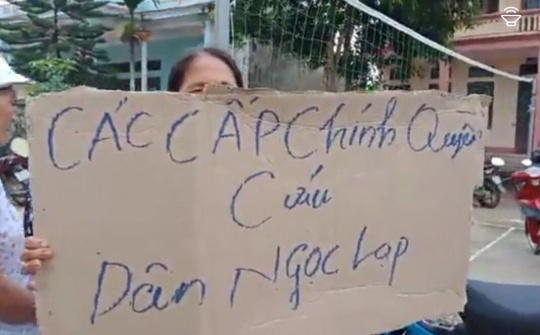 CÁC CẤP Chính Quyền
Cứu
Dân Ngọc Lạp